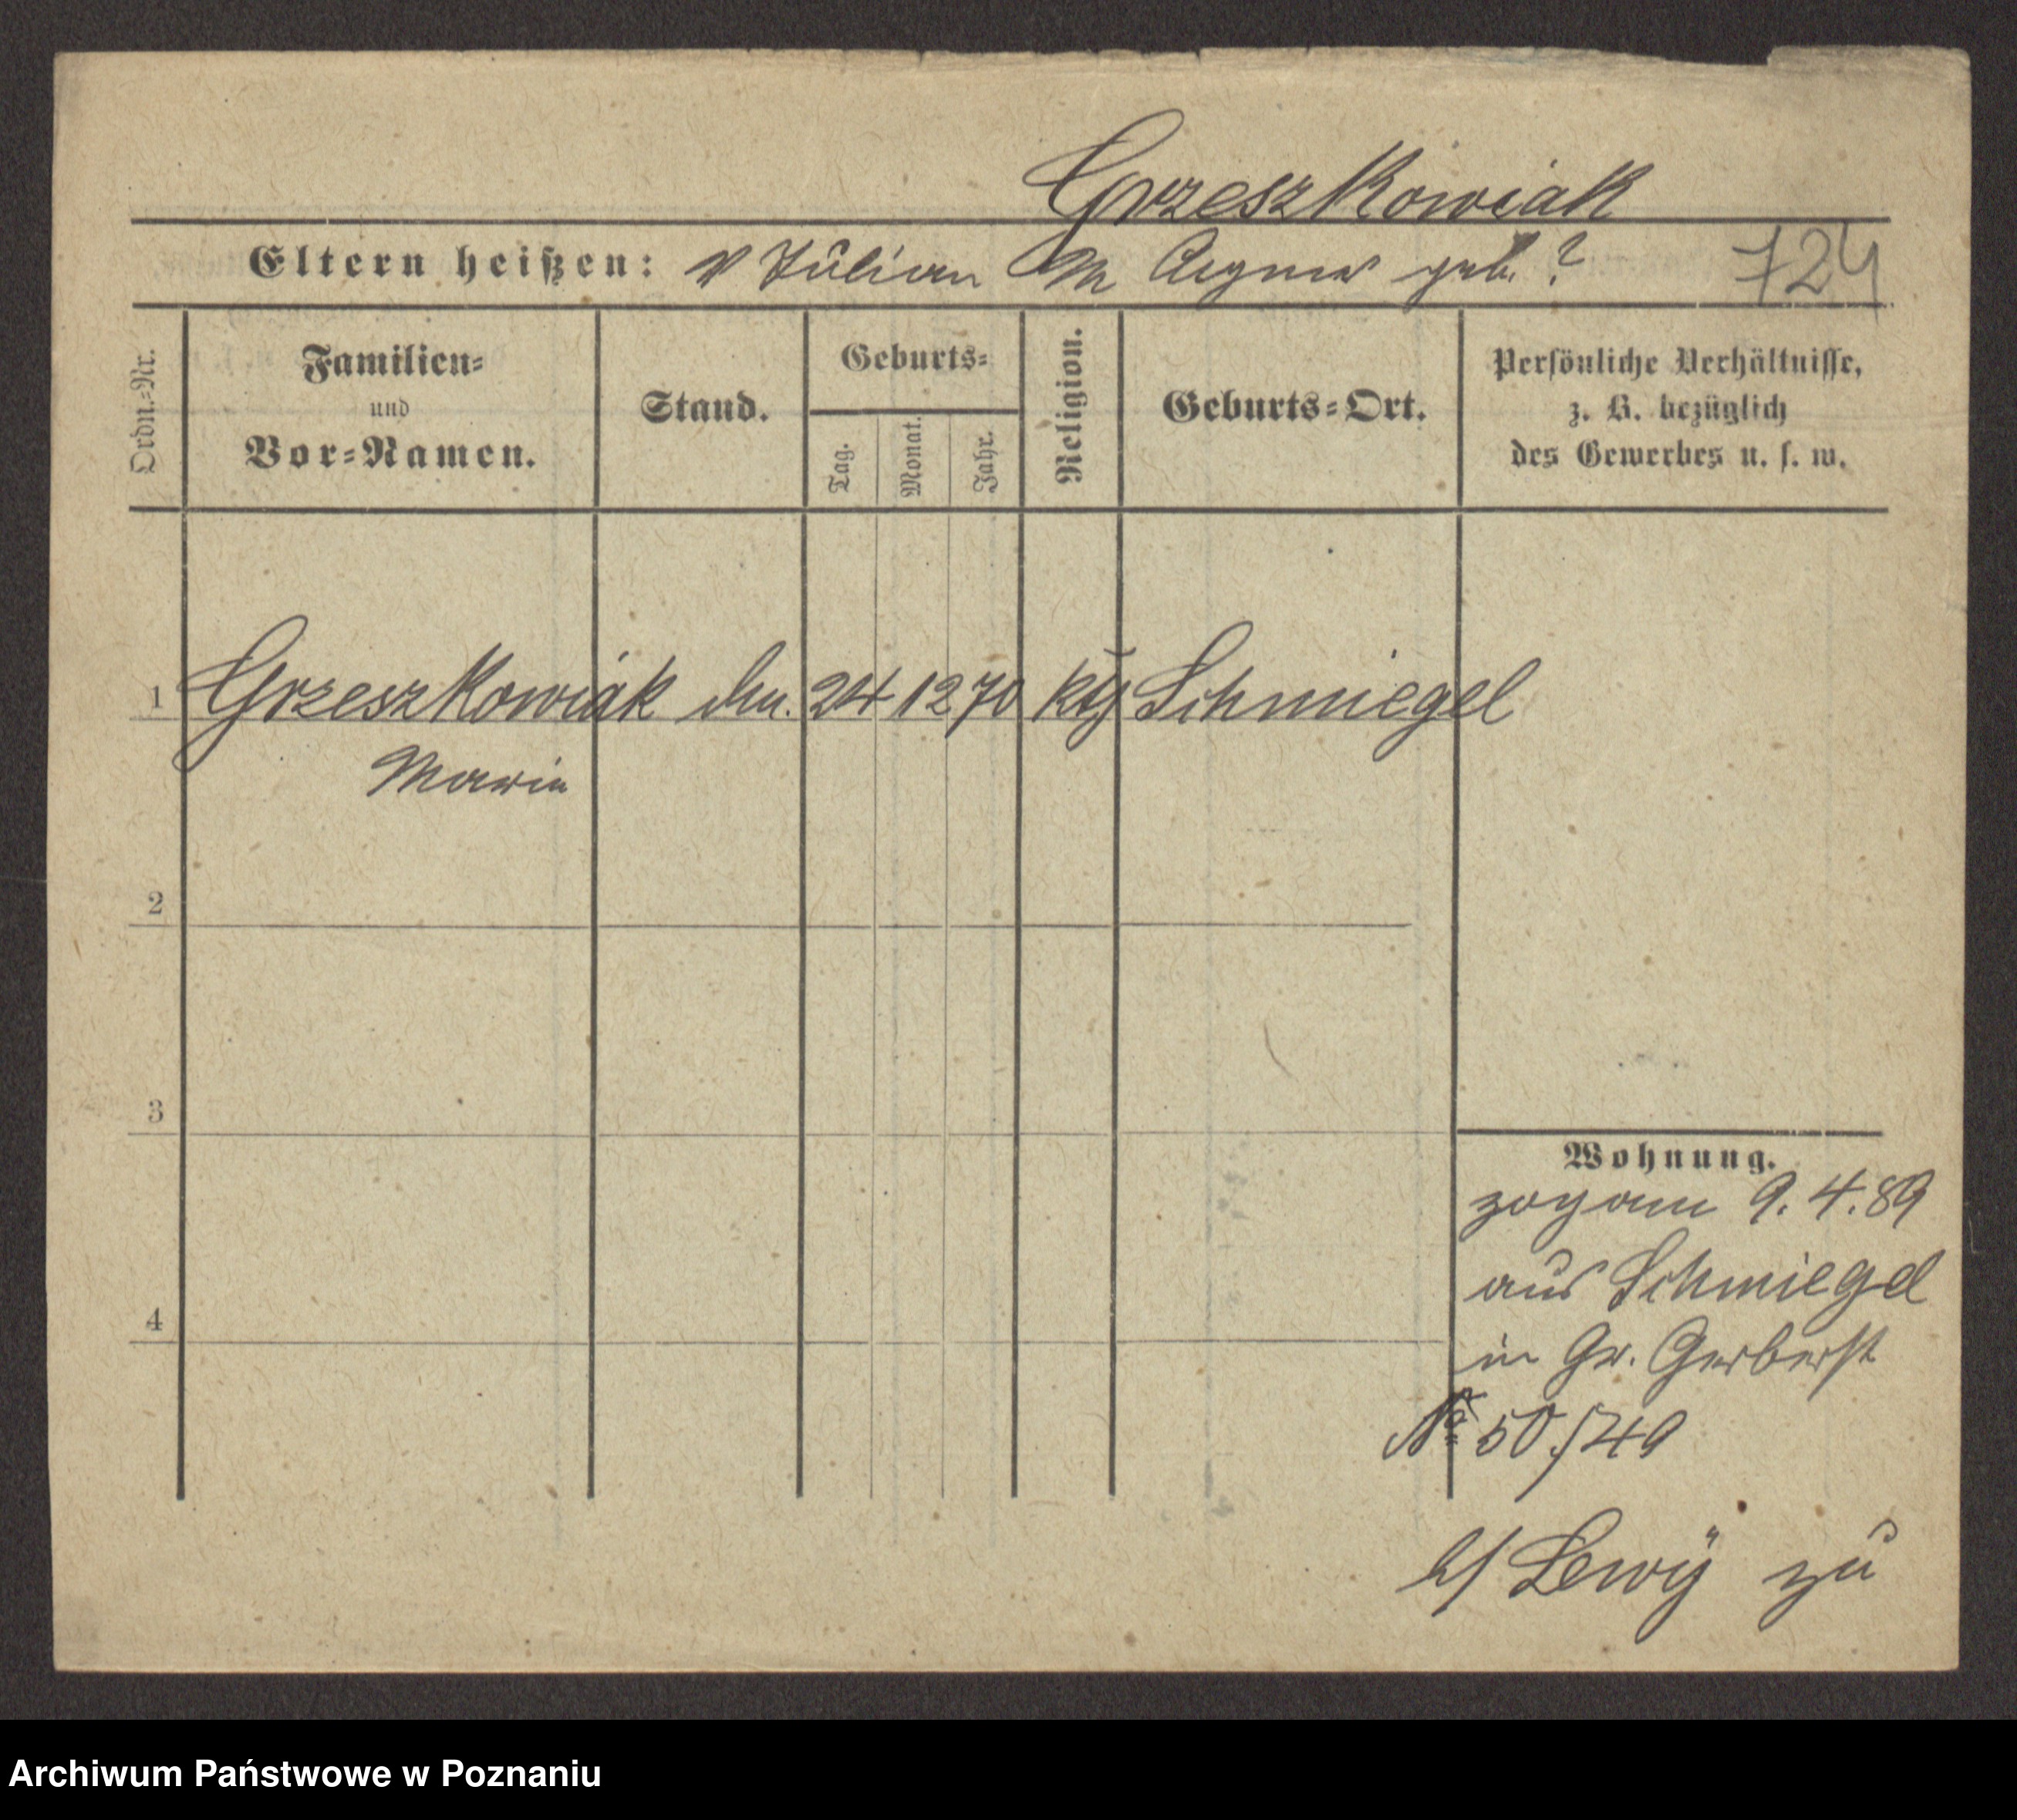 Grzeszkowiak
Eltern heißen: V Julian M Agnes geb. ? 724
Ordn.-Nr.
Familien-
und
Vor-Namen.
Stand.
Geburts-
Tag.
Monat.
Jahr.
Religion.
Geburts-Ort.
Persönliche Verhältnisse,
z. B. bezüglich
des Gewerbes u. s. w.
1 Grzeszkowiak 24 12 70 kth Schmiegel
Maria
2
3
4
Wohnung.
zog am 9. 4. 89
aus Schmiegel
in Gr. Gerberst
No 50./49
b/ Lewÿ zu
Archiwum Państwowe w Poznaniu